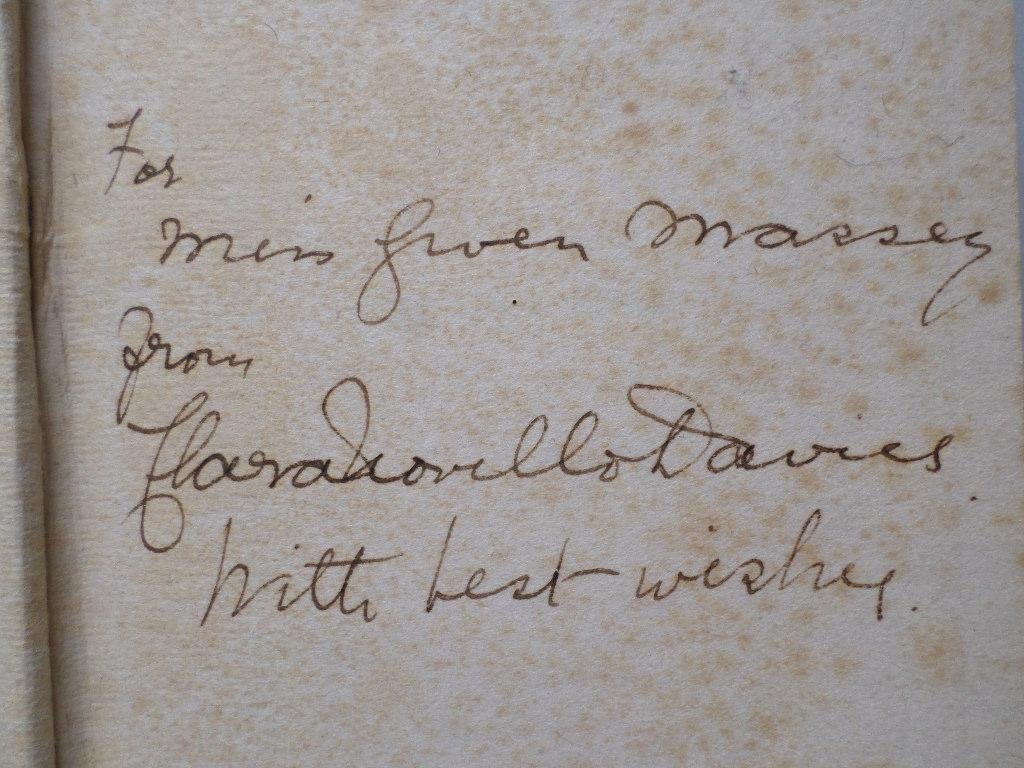 For
Miss Gwen Massey
from
Clara Novello Davies.
With best wishes.